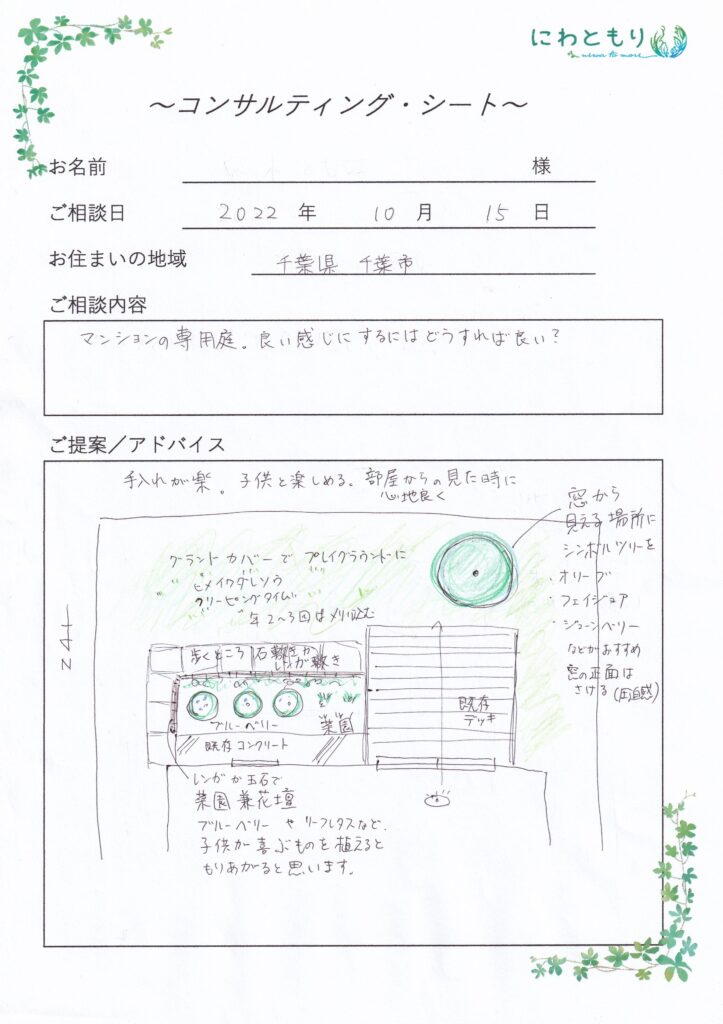 にわともり
niwa to mori
～コンサルティング・シート～
お名前 様
ご相談日 2022 年 10 月 15 日
お住まいの地域 千葉県 千葉市
ご相談内容
マンションの専用庭。良い感じにするにはどうすれば良い？
ご提案／アドバイス
手入れが楽。子供と楽しめる。部屋からの見た時に
心地良く
窓から
見える場所に
シンボルツリーを
・オリーブ
・フェイジョア
・ジューンベリー
などがおすすめ
窓の正面は
さける(圧迫感)
グランドカバーで プレイグラウンドに
ヒメイワダレソウ
クリーピングタイム
年2～3回はメリ込む
歩くところ 石敷きか
レンガ敷き
ブルーベリー
菜園
既存コンクリート
既存
デッキ
レンガか玉石で
菜園兼花壇
ブルーベリー や リーフレタスなど、
子供が喜ぶものを植えると
もりあがると思います。